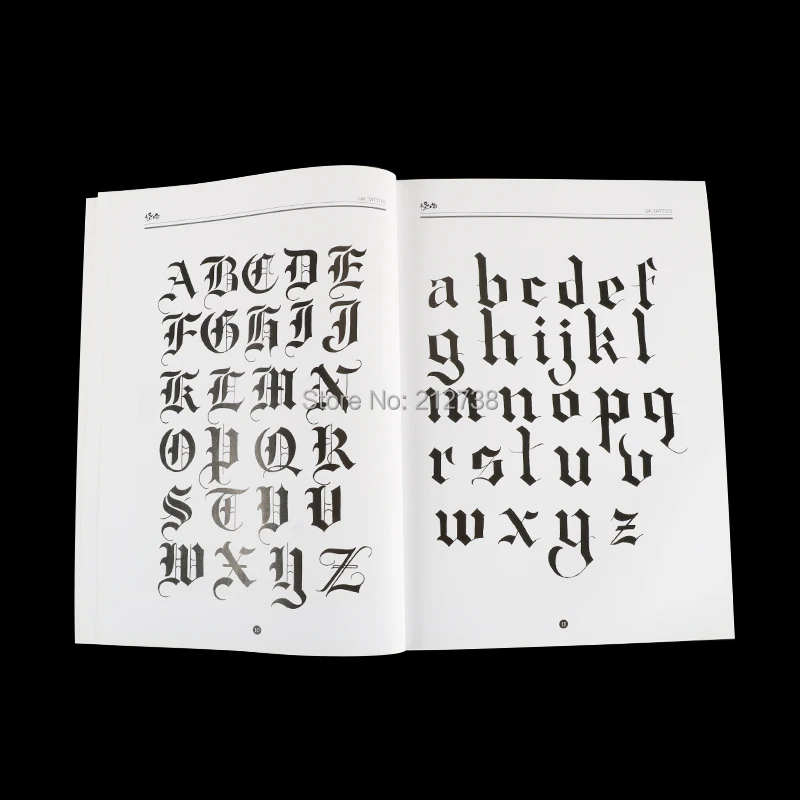 QK TATTOO
A B C D E
F G H I J
K L M N
O P Q R
S T U V
W X Y Z
10
QK TATTOO
a b c d e f
g h i j k l
m n o p q
r s t u v
w x y z
11
Store No: 212738